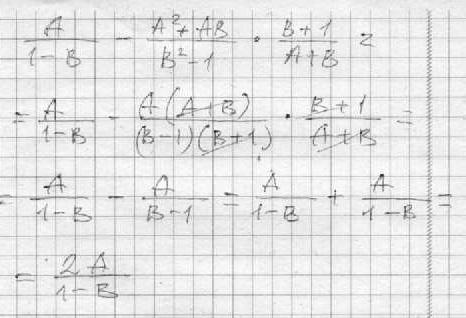 A/(1-B) - (A²+AB)/(B²-1) · (B+1)/(A+B) =
= A/(1-B) - A(A+B)/((B-1)(B+1)) · (B+1)/(A+B) =
- A/(1-B) - A/(B-1) = A/(1-B) + A/(1-B) =
= 2A/(1-B)